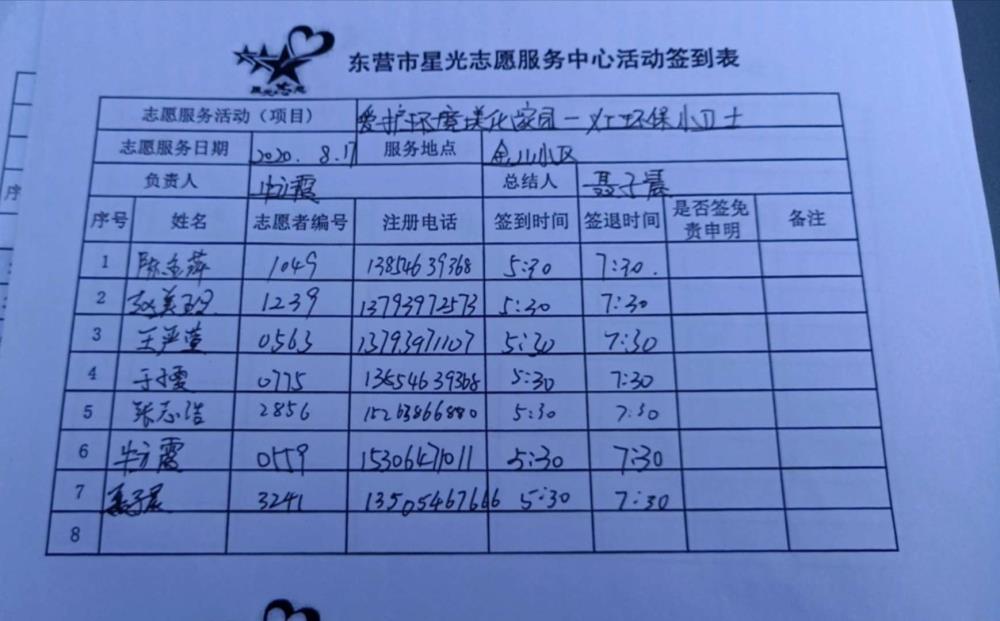 东营市星光志愿服务中心活动签到表
志愿服务活动（项目） 爱护环境美化家园一义工环保小卫士
志愿服务日期 2020.8.17 服务地点 金川小区
负责人 牛方霞 总结人 聂子晨
序号 姓名 志愿者编号 注册电话 签到时间 签退时间 是否签免责申明 备注
1 陈金萍 1049 13854639368 5:30 7:30.
2 1239 13793972573 5:30 7:30
3 王严萱 0563 13793971107 5:30 7:30
4 0775 13654639368 5:30 7:30
5 张志浩 2856 15263866880 5:30 7:30
6 牛方霞 0559 15306471011 5:30 7:30
7 聂子晨 3241 13505467666 5:30 7:30
8